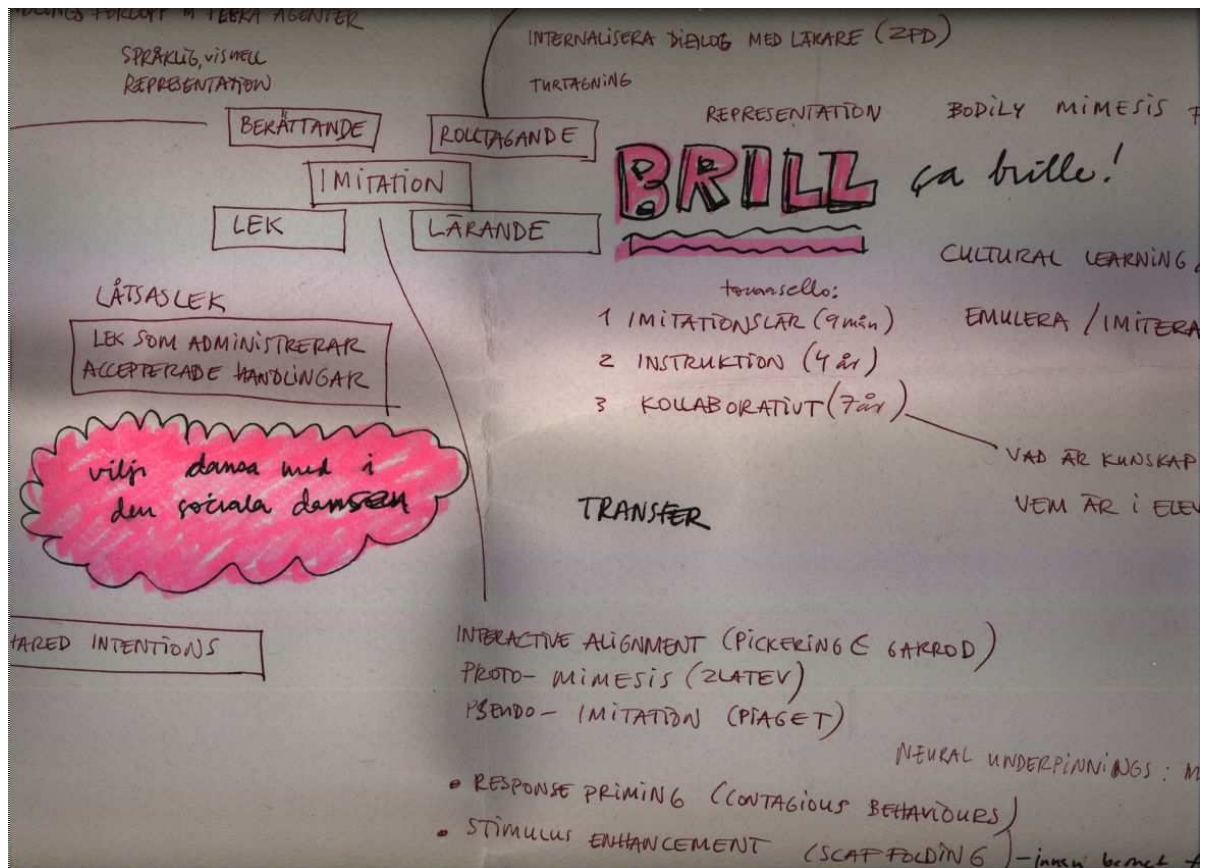 FLERA AGENTER
SPRÅKLIG, VISUELL
REPRESENTATION
BERÄTTANDE
ROLLTAGANDE
IMITATION
LEK
LÄRANDE
LÅTSASLEK
LEK SOM ADMINISTRERAR
ACCEPTERADE HANDLINGAR
dansa med i
den sociala dansen
SHARED INTENTIONS
INTERNALISERA DIALOG MED LÄRARE (ZPD)
TURTAGNING
REPRESENTATION BODILY MIMESIS
BRILL ça brille!
CULTURAL LEARNING
tomasello:
1 IMITATIONSLÄR (9 mån) EMULERA / IMITERA
2 INSTRUKTION (4 år)
3 KOLLABORATIVT (7 år)
VAD ÄR KUNSKAP
VEM ÄR I
TRANSFER
INTERACTIVE ALIGNMENT (PICKERING & GARROD)
PROTO- MIMESIS (ZLATEV)
PSEUDO- IMITATION (PIAGET)
NEURAL UNDERPINNINGS:
• RESPONSE PRIMING (CONTAGIOUS BEHAVIOURS)
• STIMULUS ENHANCEMENT (SCAFFOLDING)